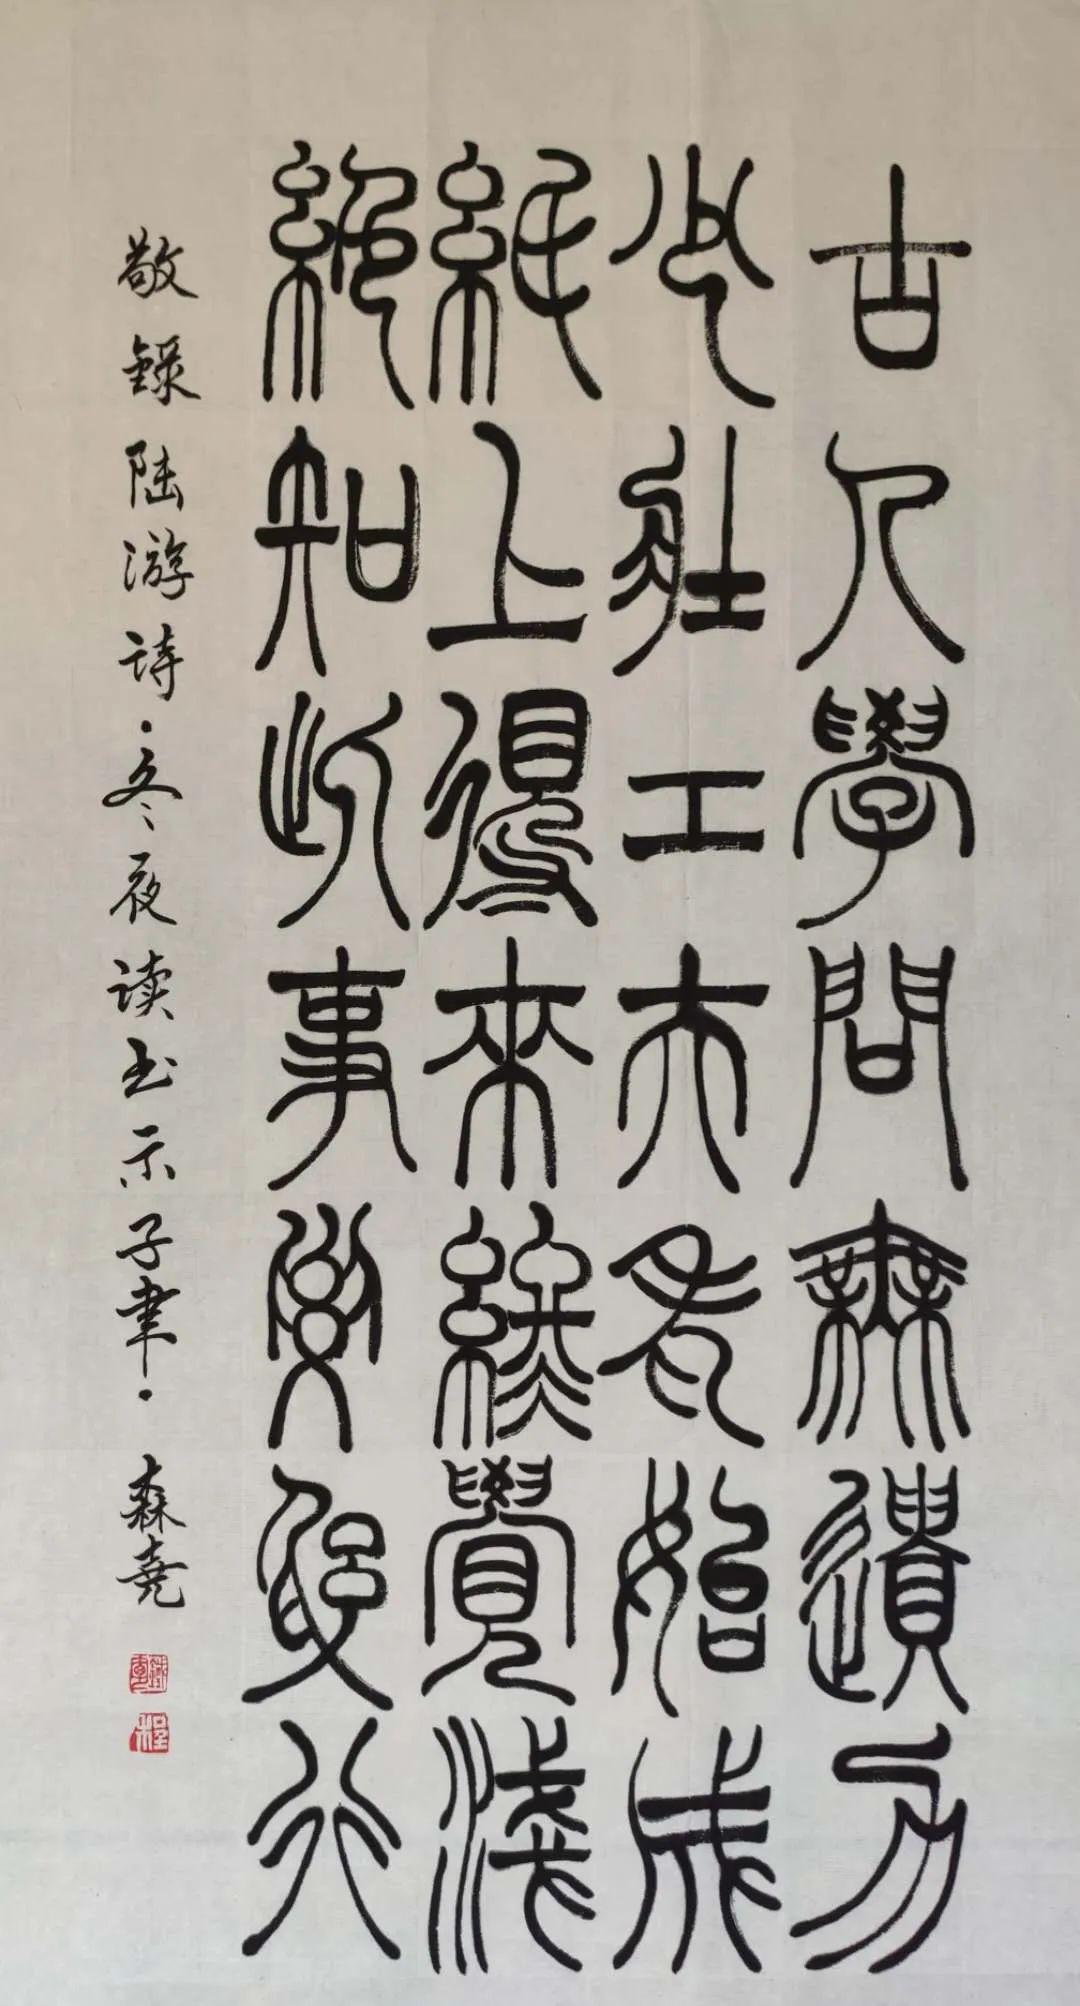 古人學問無遺力
少壯工夫老始成
紙上得來終覺淺
絕知此事要躬行
敬錄陆游诗·冬夜读书示子聿·森尧